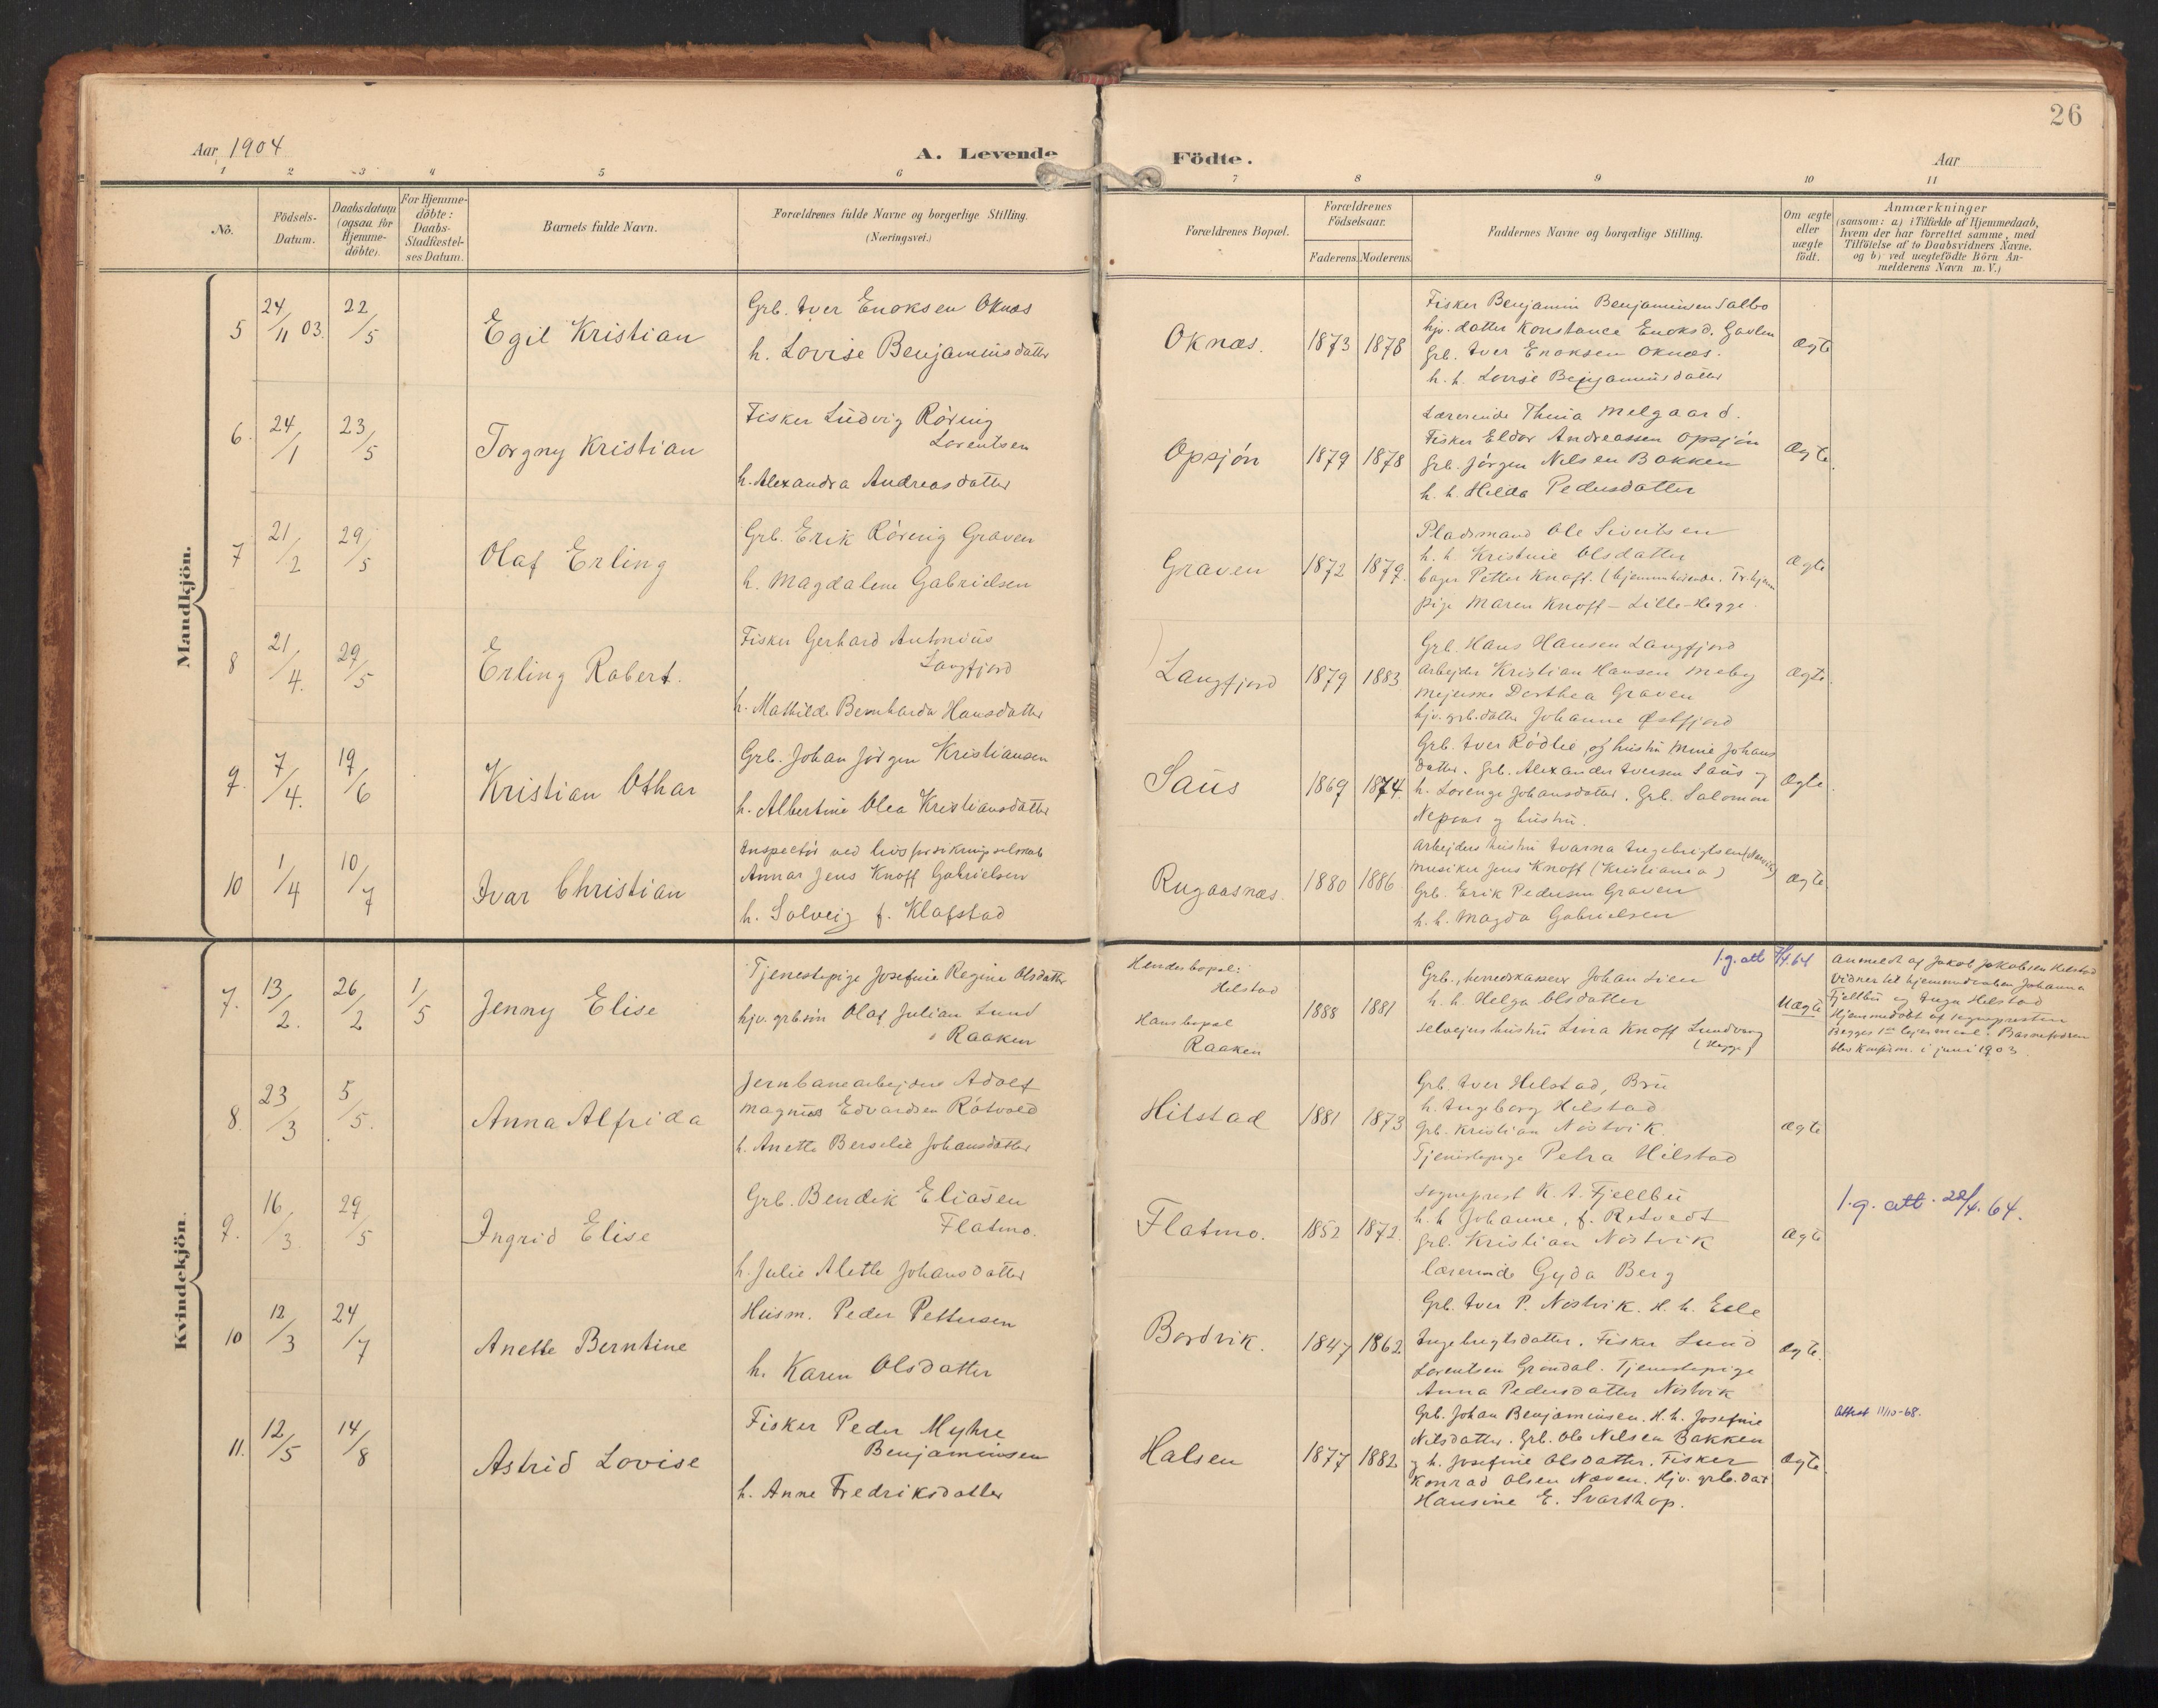 26
Aar 1904
A. Levende Födte.
Aar
1 2 3 4 5 6 7 8 9 10 11
No.
Födsels-
Datum.
Daabsdatum
(ogsaa for
Hjemme-
döbte).
For Hjemme-
döbte:
Daabs-
Stadfæstel-
ses Datum.
Barnets fulde Navn.
Forældrenes fulde Navne og borgerlige Stilling.
(Næringsvei.)
Forældrenes Bopæl.
Forældrenes
Födselsaar.
Faderens. Moderens.
Faddernes Navne og borgerlige Stilling.
Om ægte
eller
uægte
födt.
Anmærkninger
(saasom: a) i Tilfælde af Hjemmedaab,
hvem der har forrettet samme, med
Tilföielse af to Daabsvidners Navne.
og b) ved uægtefödte Börn An-
melderens Navn m. V.)
Mandkjön.
5
24/11 03.
22/5
Egil Kristian
Grb. Iver Enoksen Oknæs
h. Lovise Benjaminsdatter
Oknæs.
1873
1878
Fisker Benjamin Benjaminsen Salbo
hjv. datter Konstance Enoksd.
Grb. Iver Enoksen Oknæs.
h. h. Lovise Benjaminsdatter
ægte
6.
24/1
23/5
Torgny Kristian
Fisker Ludvig Röring
Lorentsen
h. Alexandra Andreasdatter
Opsjön
1879
1878
Lærerinde Thina Melgaard.
Fisker Eldor Andreassen Opsjön
Grb. Jörgen Nilsen Bakken
h. h. Hilda Pedersdatter
Ægte.
7
21/2
29/5
Olaf Erling
Grb. Erik Röring Graven
h. Magdalene Gabrielsen
Graven
1872
1879.
Pladsmand Ole Sivertsen
h. h. Kristine Olsdatter
bager Petter Knoff.
pige Maren Knoff – Lille-Hegge.
Ægte
8
21/4.
29/5
Erling Robert.
Fisker Gerhard Antonius
Langfjord
h. Mathilde Bernharda Hansdatter
Langfjord
1879
1883
Grb. Hans Hansen Langfjord
Arbejder Kristian Hansen Meby
Mejerske Dorthea Graven
hjv. grb. datter Johanne Østfjord
ægte.
9.
7/4.
19/6
Kristian Othar
Grb. Johan Jörgen Kristiansen
h. Albertine Olea Kristiansdatter
Saus
1869
1874.
Grb. Iver Rödlie, og hustru Mine Johans
datter. Grb. Alexander Iversen Saus og
h. Lorense Johansdatter. Grb. Salomon
og hustru.
Ægte.
10
1/4
10/7
Ivar Christian
Inspectör ved livsforsikringsselskab
Annar Jens Knoff Gabrielsen
h. Solveig f. Klafstad
Rugaasnæs.
1880
1886
Arbejders hustru Ivarna Ingebrigtsen
Musiker Jens Knoff (Kristiania)
Grb. Erik Pedersen Graven
h. h. Magda Gabrielsen
ægte
Kvindekjön.
7.
13/2.
26/2
1/5
Jenny Elise
Tjenestepige Josefine Regine Olsdatter
hjv. grb.sön Olaf Julian Lund
Raaken
Hendes bopæl:
Helstad
Hans bopæl
Raaken
1888
1881
1.g. att 7/4.64
Grb., herredskasserer Johan Lien
h. h. Helga Olsdatter
selvejers hustru Lina Knoff Lundvorg
(Hegge)
Uægte
Anmeldt af Jakob Jakobsen Helstad
Vidner til hjemmedaaben Johanna
Fjellbu og Inga Helstad
Hjemmedöbt af sognepresten
Begges 1ste lejermaal. Barnefaderen
blev konfirm. i juni 1903.
8.
23/3
5/5.
Anna Alfrida
Jernbanearbejder Adolf
Magnus Edvardsen Rötvold
h. Anette Berselie Johansdatter
Hilstad
1881
1873
Grb. Iver Helstad, Bru
h. Ingeborg Hilstad
Grb. Kristian Nöstvik.
Tjenestepige Petra Hilstad
ægte
9.
16/3
29/5
Ingrid Elise
Grb. Bendik Eliasen
Flatmo.
h. Julie Alette Johansdatter
Flatmo.
1852
1872.
Sogneprest K. A. Fjellbu
h. h Johanne, f. Retvedt
Grb. Kristian Nöstvik
lærerinde Gyda Berg
ægte
1.g. att. 28/4.64.
10
12/3
24/7
Anette Berntine
Husm. Peder Pettersen
h. Karen Olsdatter
Bordvik.
1847
1862
Grb. Iver P. Nöstvik. H. h.
Ingebrigtsdatter. Fisker Lund
Lorentsen Grondal. Tjenestepige
Anna Pedersdatter Nöstvik
Ægte.
11.
12/5
14/8
Astrid Lovise
Fisker Peder Myhre
Benjaminsen
h. Anne Fredriksdatter
Halsen
1877
1882
Grb. Johan Benjaminsen. H. h. Josefine
Nilsdatter. Grb. Ole Nilsen Bakken
og h. Josefine Olsdatter. Fisker
Konrad Olsen Næven. Hjv. grb. dat
Hansine E. Svarthop.
ægte.
Attest 11/10-68.